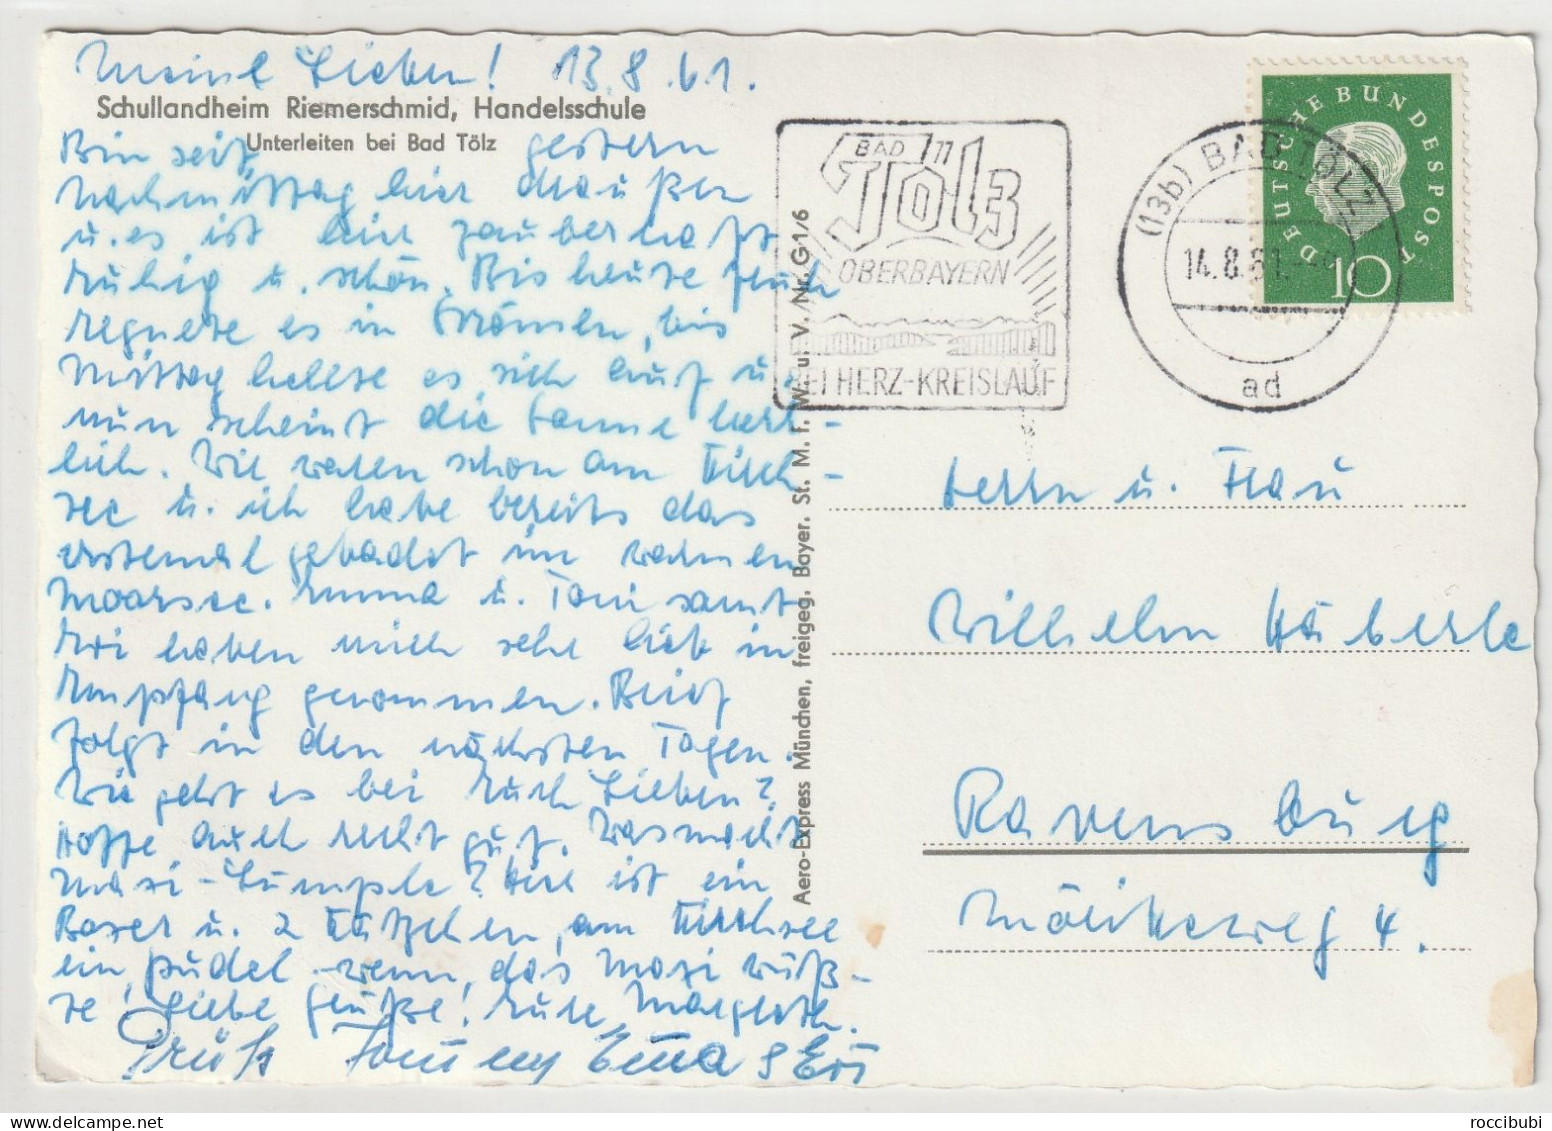 Meine Lieben! 13.8.61.
Schullandheim Riemerschmid, Handelsschule
Unterleiten bei Bad Tölz
Bin seit gestern
nachmittag hier draußen
u. es ist hier zauberhaft
ruhig u. schön. Bis heute früh
regnete es in Strömen, bis
Mittag hellte es sich auf u.
nun scheint die Sonne herr-
lich. Wir waren schon am Kirch-
see u. ich habe bereits das
erstemal gebadet im warmen
Moorsee. Emma u. Toni samt
Evi haben mich sehr lieb in
Empfang genommen. Brief
folgt in den nächsten Tagen.
Wie geht es bei Euch Lieben?
Hoffe auch recht gut. Was macht
Maxi-Lumple? Hier ist ein
Boxer u. 2 Kätzchen, am Kirchsee
ein Pudel - wenn das Maxi wüß-
te! Liebe Grüße! Eure Margreth.
Gruß Emma & Evi
Aero-Express München, freigeg. Bayer. St. M. f. W. u. V. Nr. G 1/6
BAD
Tölz
OBERBAYERN
BEI HERZ-KREISLAUF
(13b) BAD TÖLZ
14.8.61.
ad
DEUTSCHE BUNDESPOST
10
Herrn u. Frau
Wilhelm Häberle
Ravensburg
Mörikeweg 4.
roccibubi